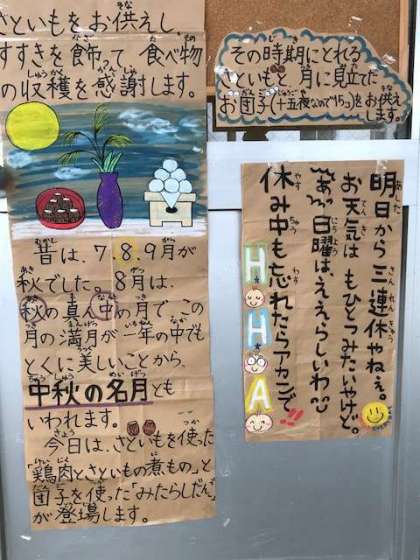 さといもをお供えし、
すすきを飾って、食べ物
の収穫を感謝します。
昔は、7.8.9月が
秋でした。8月は、
秋の真ん中の月で、この
月の満月が一年の中でも
とくに美しいことから、
中秋の名月とも
いわれます。
今日は、さといもを使った
「鶏肉とさといもの煮もの」と
団子を使った「みたらしだんご」
が登場します。
その時期にとれる
さといもと、月に見立てた
お団子(十五夜なので15こ)をお供え
します。
明日から三連休やねぇ。
お天気は もひとつみたいやけど。
日曜はええらしいわ
休み中も忘れたらアカンで!!
H.H.A